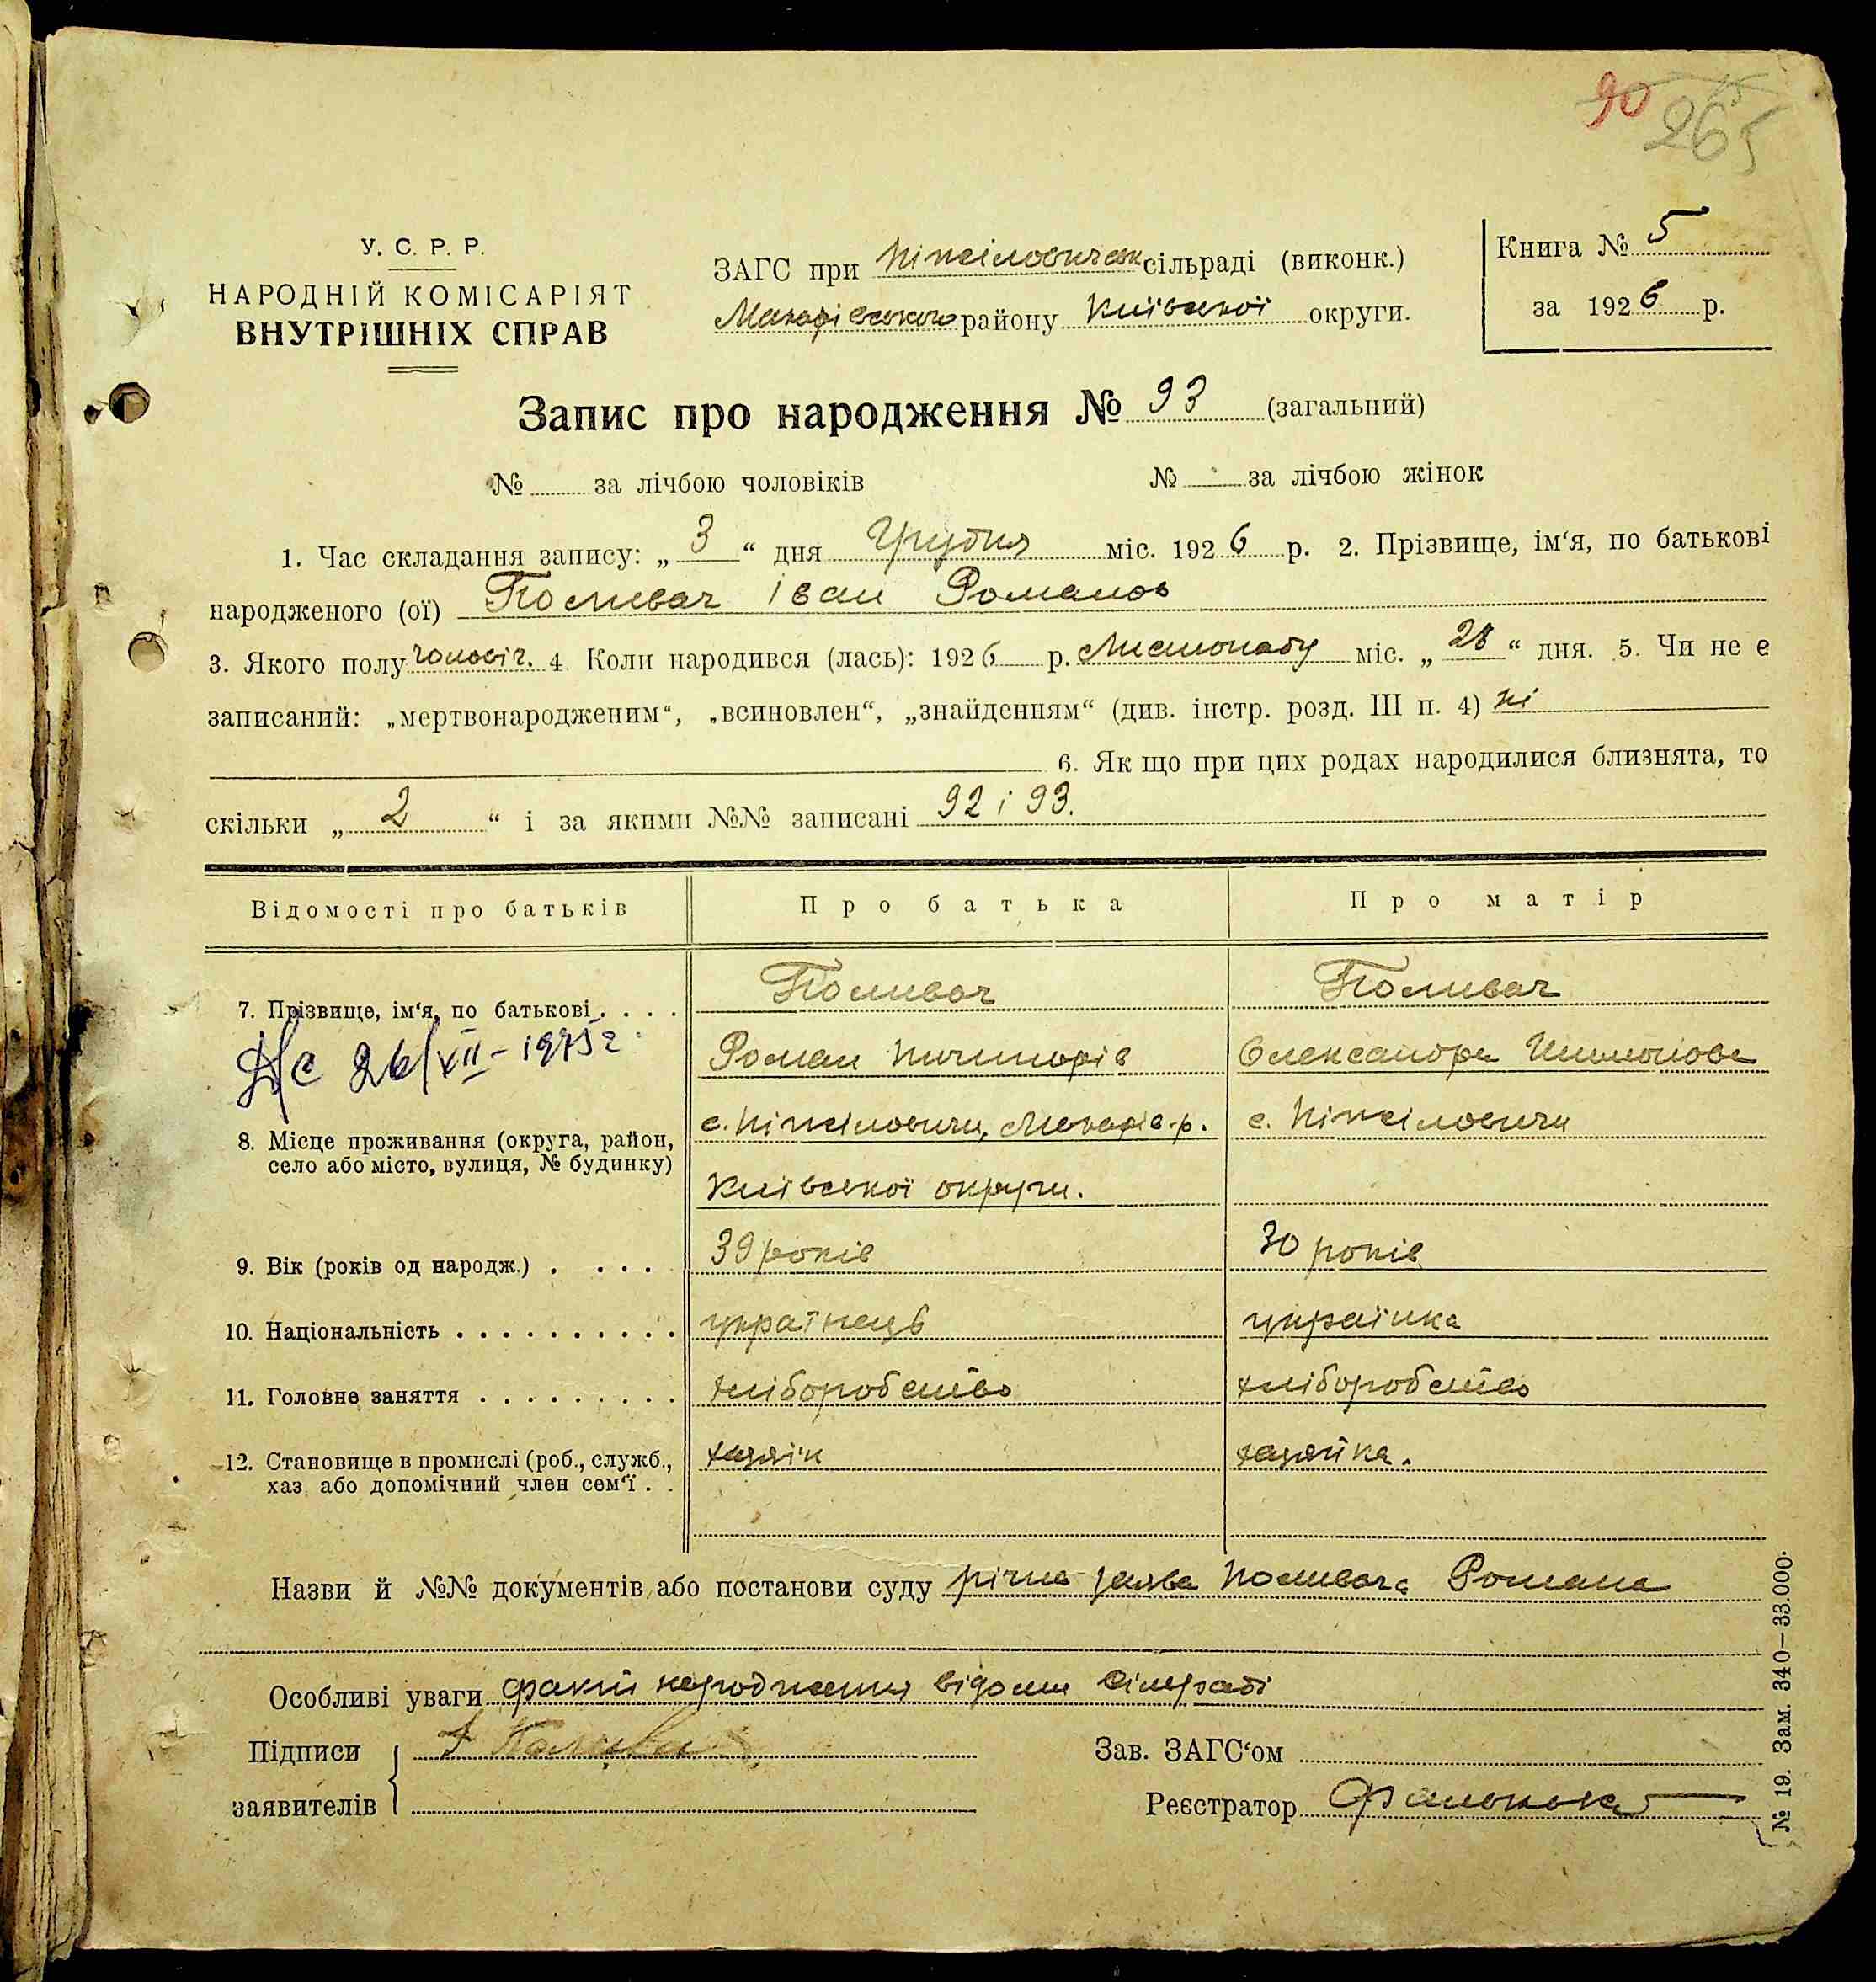 90 265
У. С. Р. Р.
НАРОДНІЙ КОМІСАРІЯТ
ВНУТРІШНІХ СПРАВ
ЗАГС при сільраді (виконк.)
Макарівського району Київської округи.
Книга № 5
за 1926 р.
Запис про народження № 93 (загальний)
№ за лічбою чоловіків № за лічбою жінок
1. Час складання запису: „ 3 “ дня Грудня міс. 1926 р. 2. Прізвище, ім‘я, по батькові
народженого (ої) Поливач Іван Романов
3. Якого полу чоловіч. 4 Коли народився (лась): 1926 р. Листопаду міс. „ 28 “ дня. 5. Чи не є
записаний: „мертвонародженим“, „всиновлен“, „знайденням“ (див. інстр. розд. III п. 4) ні
6. Як що при цих родах народилися близнята, то
скільки „ 2 “ і за якими №№ записані 92 і 93.
Відомості про батьків Про батька Про матір
7. Прізвище, ім‘я, по батькові . . . . Поливач Поливач
26/XII-1975 г. Роман Олександра
8. Місце проживання (округа, район, село або місто, вулиця, № будинку) с. Ніжиловичи, Макарів. р. с. Ніжиловичи
Київської округи.
9. Вік (років од народж.) . . . . 39 років 30 років
10. Національність . . . . . . . . . . українець українка
11. Головне заняття . . . . . . . . . хліборобство хліборобство
12. Становище в промислі (роб., служб., хаз. або допомічний член сем‘ї . . хазяїн хазяйка.
Назви й №№ документів або постанови суду річна заява Поливача Романа
Особливі уваги факт народження відомий сільраді
Підписи заявителів Р Полива
Зав. ЗАГС‘ом
Реєстратор
№ 19. Зам. 340–33.000.